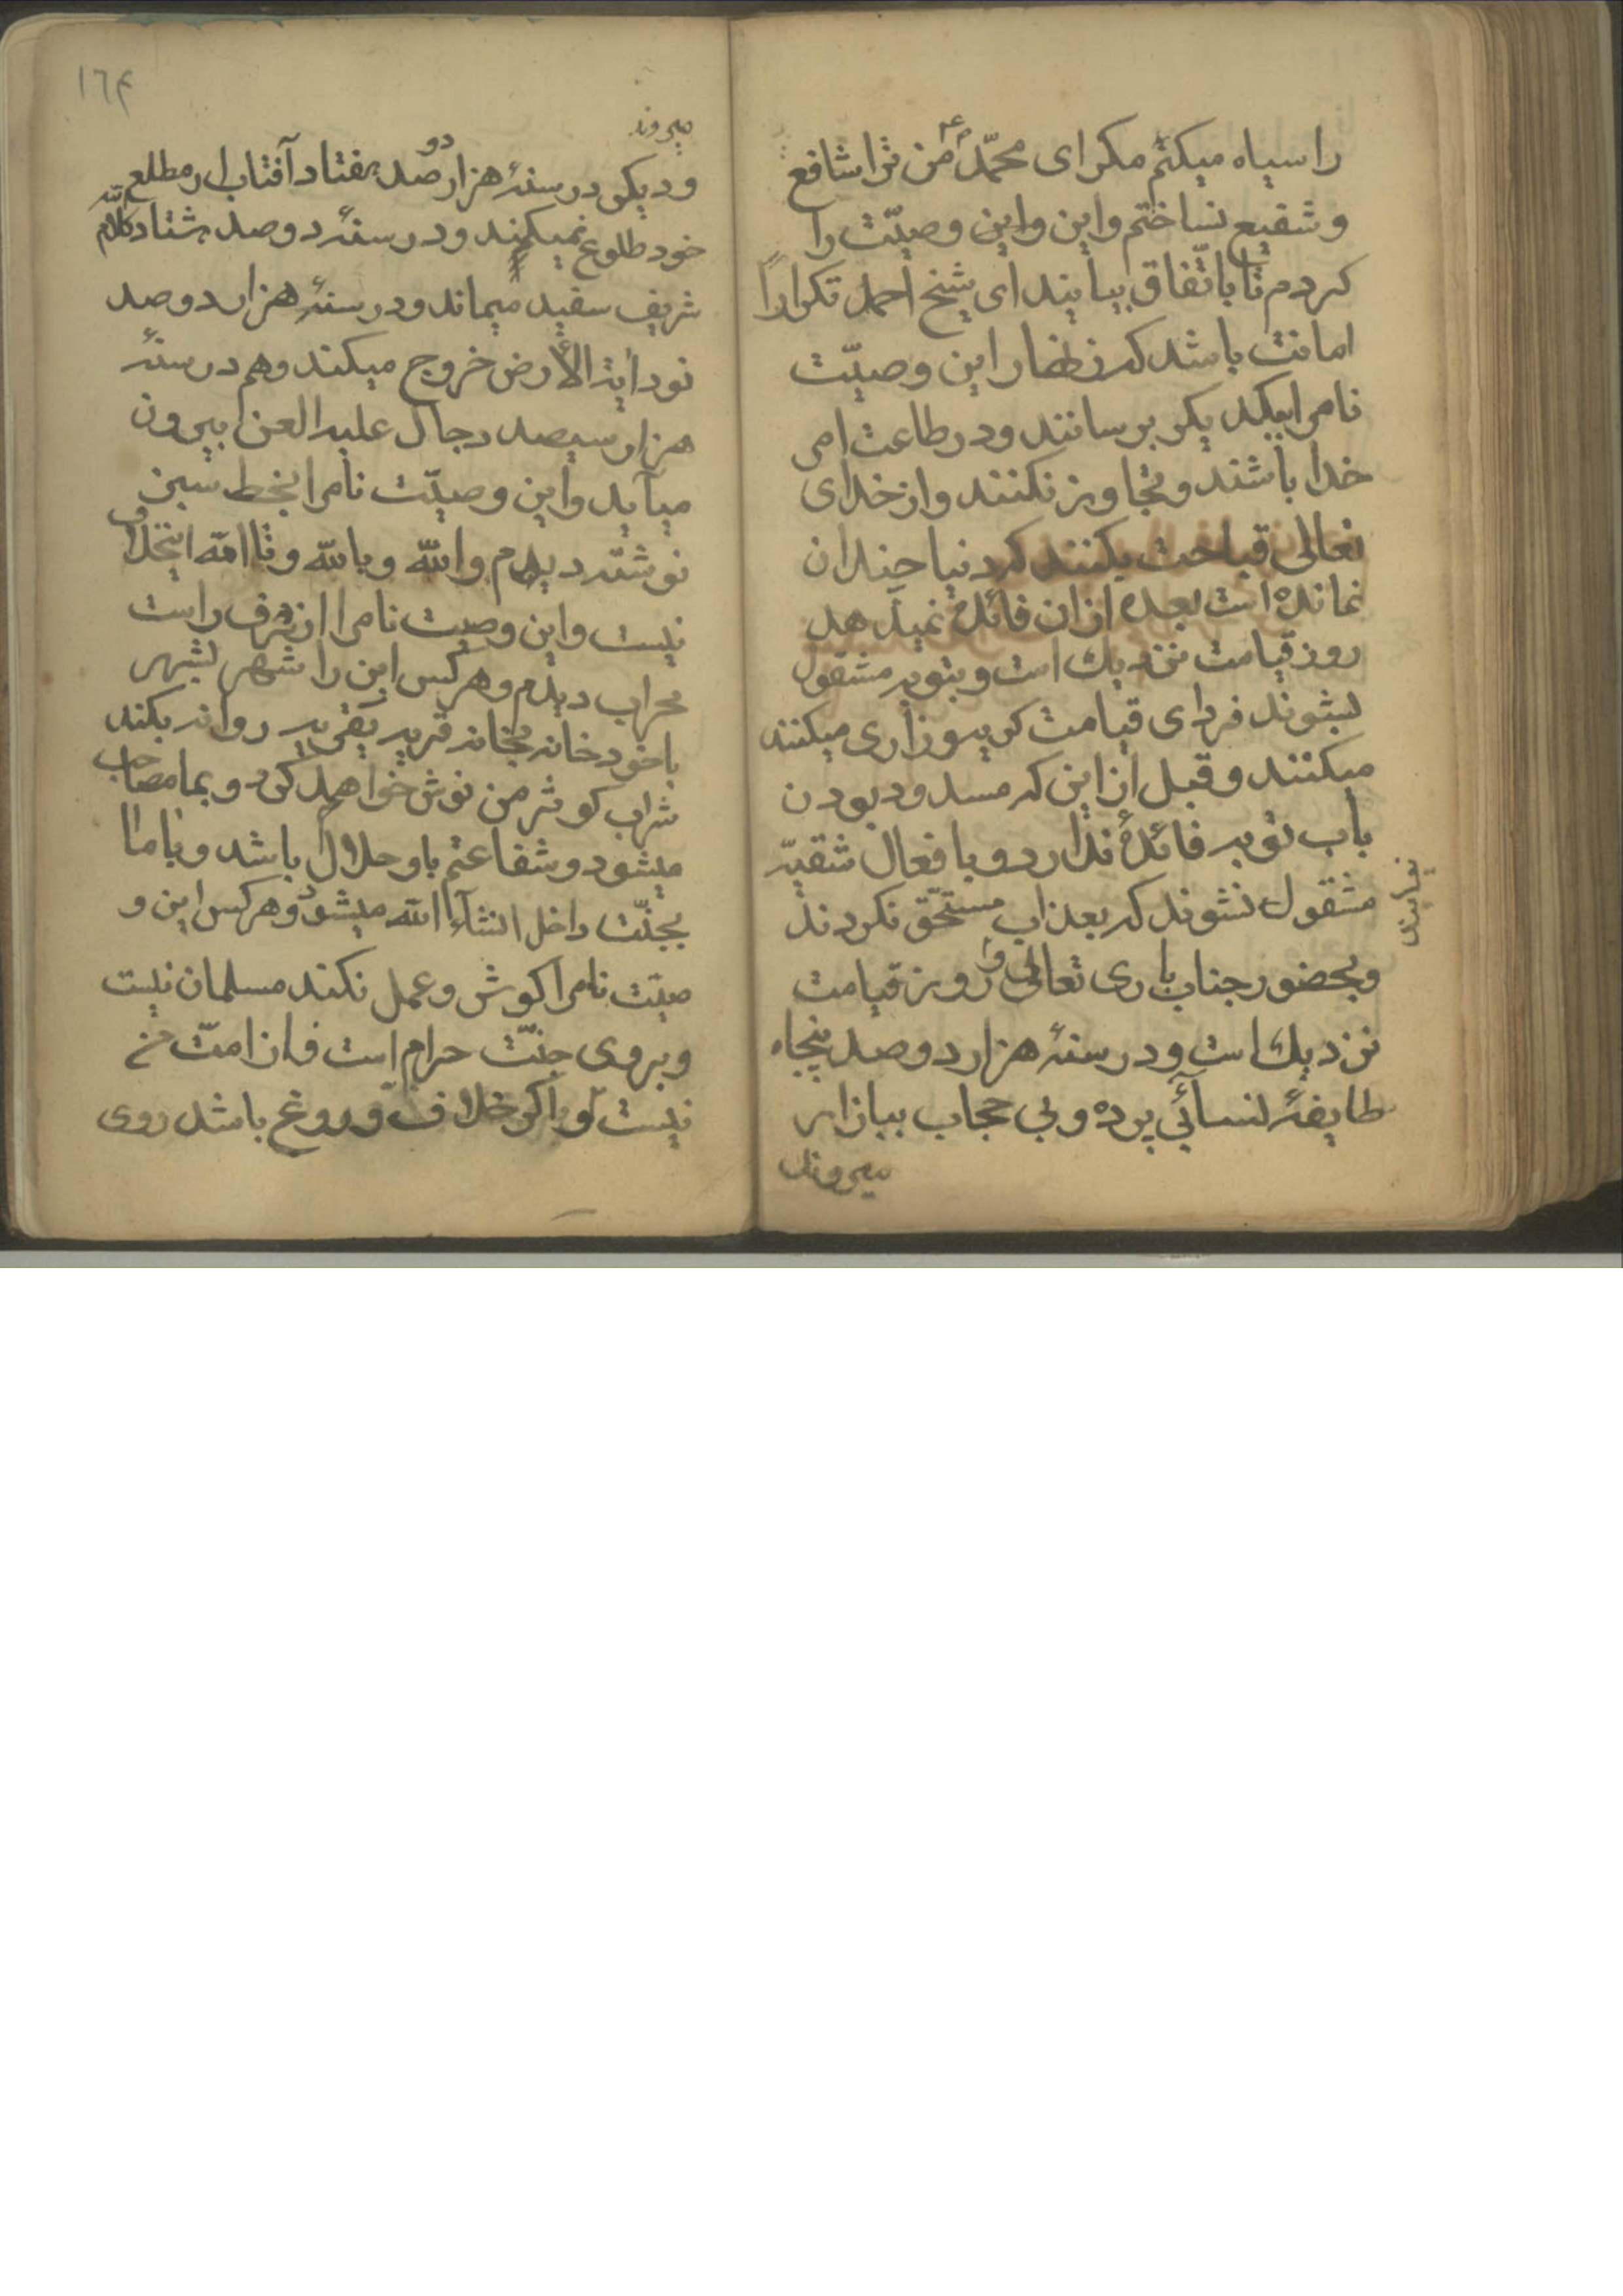 را سیاه میکنم مکر ای محمّد من ترا شافع
و شفیع نساختم و این و این وصیّت را
کردم تا باتّفاق بیایند ای شیخ احمد تکرارًا
امانت باشد که زنهار این وصیّت
نامرا بیکدیکر برسانند و در طاعت امر
خدا باشند و تجاوز نکنند و از خدای
تعالی قباحت بکنند که دنیا چندان
نمانده است بعده از ان فائدۀ نمیدهد
روز قیامت نزدیك است و بتوبه مشقول
بشوند فردای قیامت زاری میکنند
میکنند و قبل از این که مسدود بودن
باب توبه فائدۀ ندارد و با فعال شقیّه
مشقول نشوند که بعذاب مستحّق نکردند
و بحضور جناب باری تعالی روز قیامت
نزدیك است و در سنۀ هزار دوصد پنجاه
طایفۀ نسائی پرده و بی حجاب ببازار
میروند
١٦٤
میروند
و دیکر در سنۀ هزار دو صد هفتاد آفتاب از مطلع
خود طلوع نمیکند و در سنۀ دوصد هشتاد کلام الله
شریف سفید میماند و در سنۀ هزار دوصد
نود دابة الأرض خروج میکند و هم در سنۀ
هزار سیصد دجال علیه العن ابیرون
میآید و این وصیّت نامرا بخط سبز
نوشته دیدم والله وبالله وتاالله اینخلاف
نیست و این وصیت نامرا از طرف راست
محراب دیدم و هرکس این را شهر بشهر
یا خود خانه بخانه قریه بقریه روانه بکند
شراب کوثر من نوش خواهد کرد و بما مصاحب
میشود و شفاعتم باو حلال باشد و با ما
بجنّت داخل انشاء الله میشود و هرکس این و
صیّت نامرا کوش و عمل نکند مسلمان نیست
و بروی جنّت حرام است و از امّت من
نیست و اکر خلاف و دروغ باشد روی